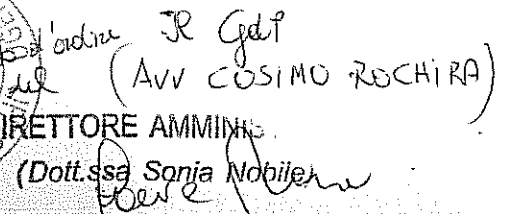 d'ordine IL GdP
del (AVV COSIMO ROCHIRA)
DIRETTORE AMMINIS
(Dott.ssa Sonia Nobile)